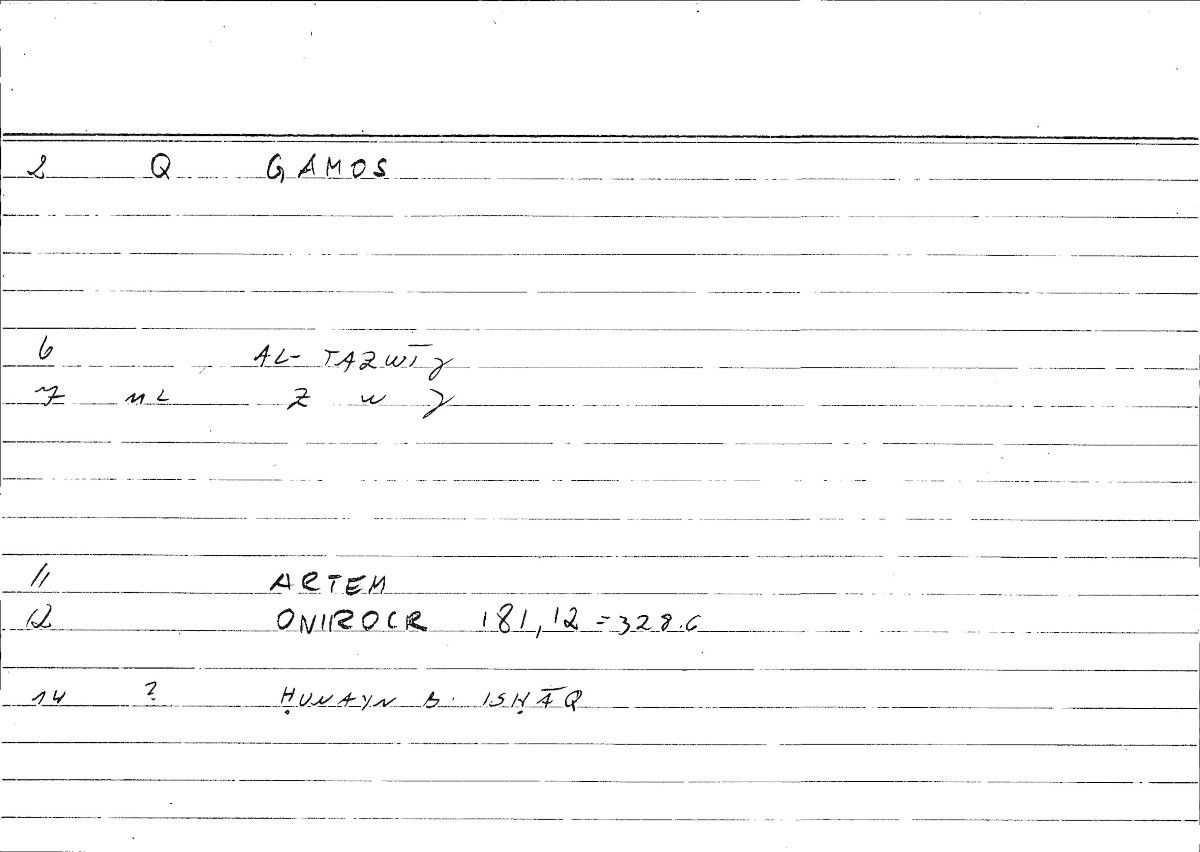 2 Q GAMOS
6 AL-TAZWĪJ
7 ML Z W J
11 ARTEM
12 ONIROCR 181,12 = 328.6
14 ? ḤUNAYN B. ISḤĀQ